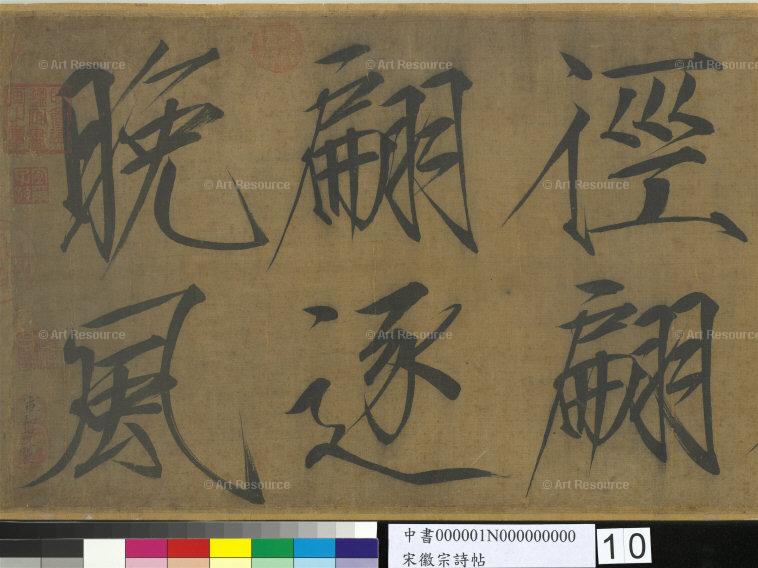 徑翩
翩逐
晚風
© Art Resource
© Art Resource
© Art Resource
© Art Resource
© Art Resource
© Art Resource
© Art Resource
© Art Resource
© Art Resource
© Art Resource
中書000001N000000000
宋徽宗詩帖
10